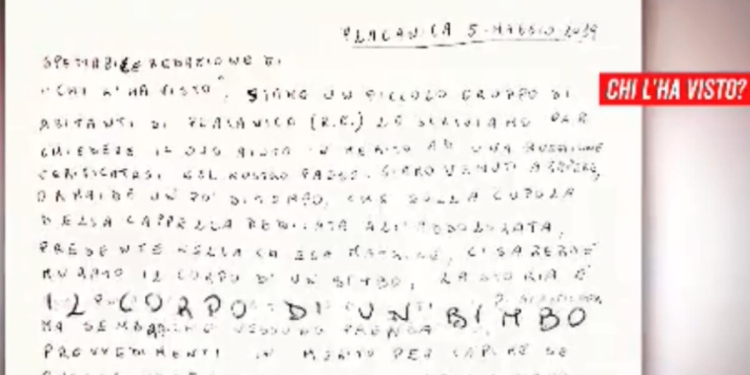 PLACANICA 5-MAGGIO 2019
SPETTABILE REDAZIONE DI
CHI L'HA VISTO?
"CHI L'HA VISTO", SIAMO UN PICCOLO GRUPPO DI
ABITANTI DI PLACANICA (R.C.) LE SCRIVIAMO PER
CHIEDERE IL SUO AIUTO IN MERITO AD UNA QUESTIONE
VERIFICATASI NEL NOSTRO PAESE. SIAMO VENUTI A SAPERE,
ORMAI DA UN PO' DI TEMPO, CHE SULLA CUPOLA
DELLA CAPPELLA DEDICATA ALL'ADDOLORATA,
PRESENTE NELLA CHIESA MATRICE, CI SAREBBE
MURATO IL CORPO DI UN BIMBO, LA STORIA È
IL CORPO DI UN BIMBO
MA SEMBRA NESSUNO PRENDA
PROVVEDIMENTI IN MERITO PER CAPIRE SE